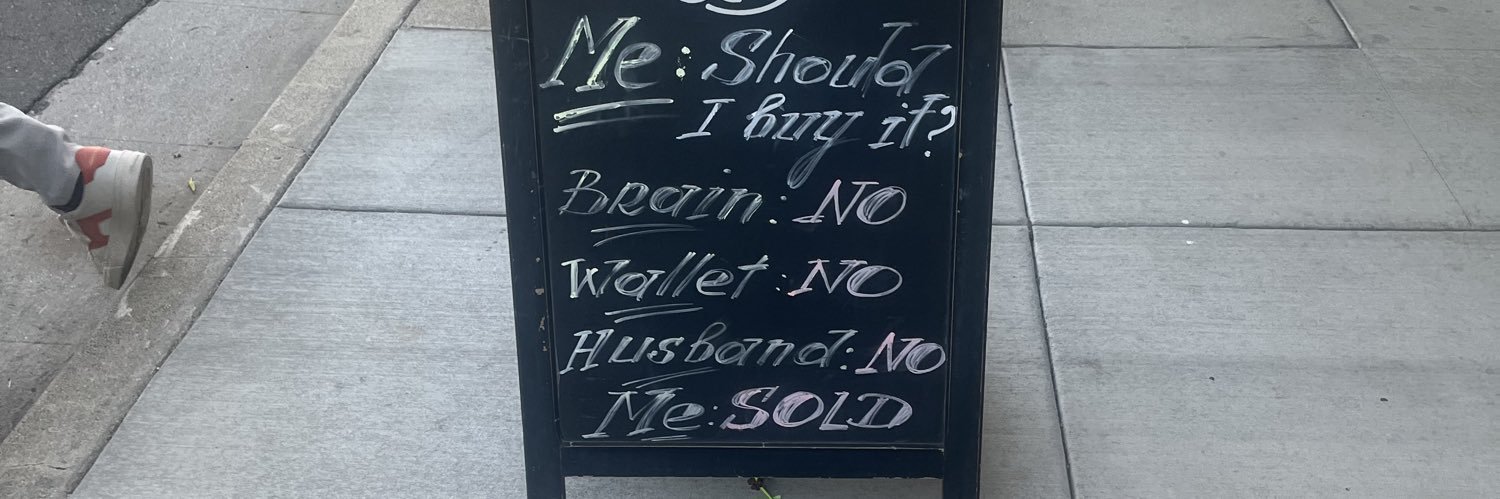 Me: Should
I buy it?
Brain: NO
Wallet: NO
Husband: NO
Me: SOLD